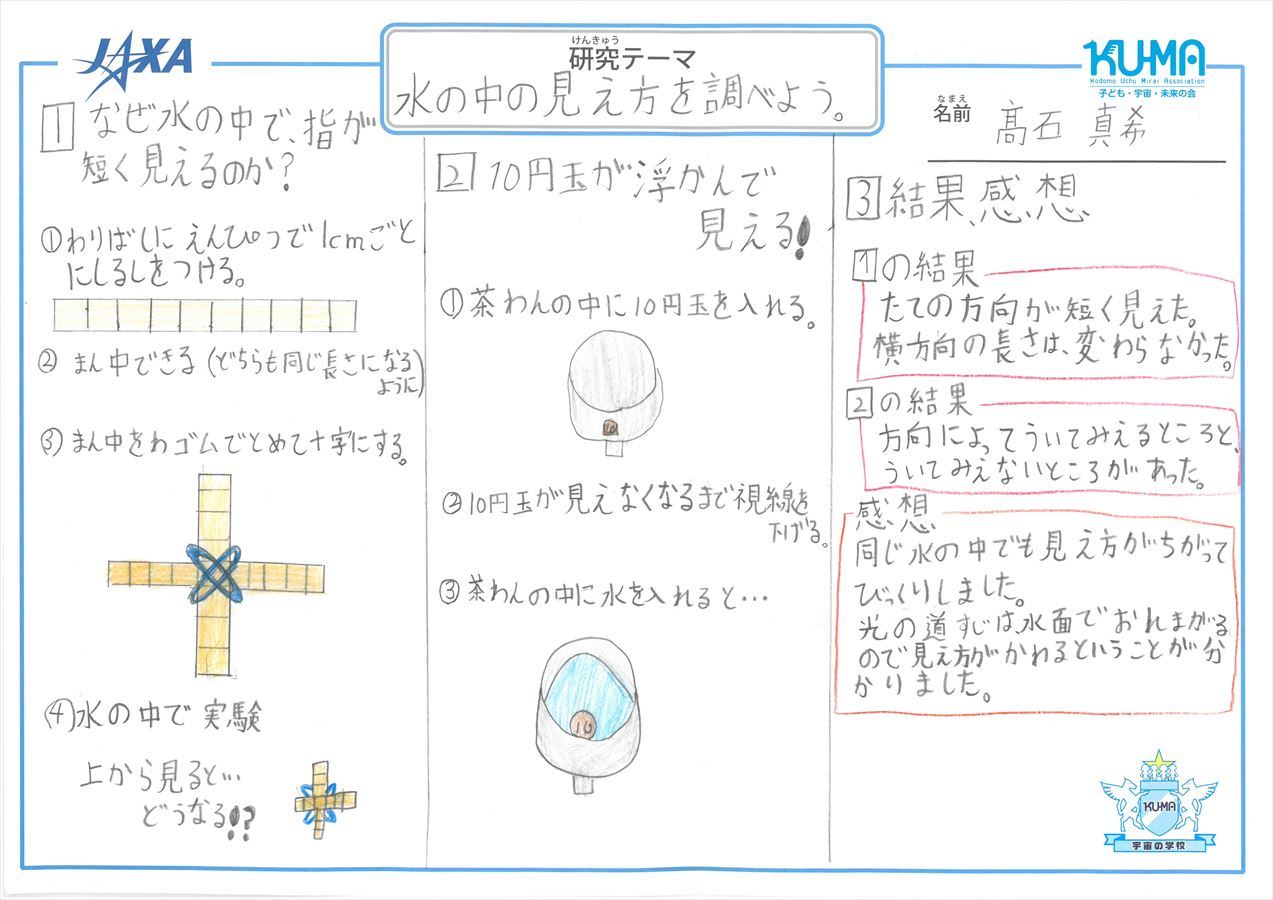 JAXA
けんきゅう
研究テーマ
水の中の見え方を調べよう。
KU-MA
Kodomo Uchu Mirai Association
子ども・宇宙・未来の会
なまえ
名前
髙石 真希
1 なぜ水の中で、指が
短く見えるのか?
①わりばしに えんぴつで1cmごと
にしるしをつける。
② まん中できる(どちらも同じ長さになる
ように)
③ まん中をわゴムでとめて十字にする。
④水の中で 実験
上から見ると…
どうなる!?
2 10円玉が浮かんで
見える!
①茶わんの中に10円玉を入れる。
10
②10円玉が見えなくなるまで視線を
下げる。
③茶わんの中に水を入れると…
10
3 結果、感想
1の結果
たての方向が短く見えた。
横方向の長さは、変わらなかった。
2の結果
方向によってういてみえるところと、
ういてみえないところがあった。
感想
同じ水の中でも見え方がちがって
びっくりしました。
光の道すじは、水面でおれまがる
ので見え方がかわるということが分
かりました。
KU-MA
宇宙の学校